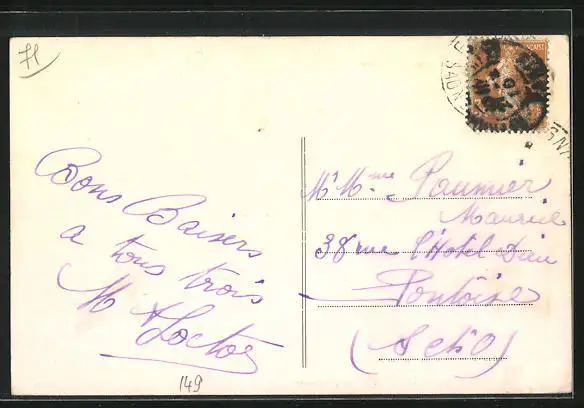 71
Bons Baisers
a tous trois
M
149
Mr Mme Paumier
Maurice
38 rue l'Hotel Dieu
Pontoise
(S et O)